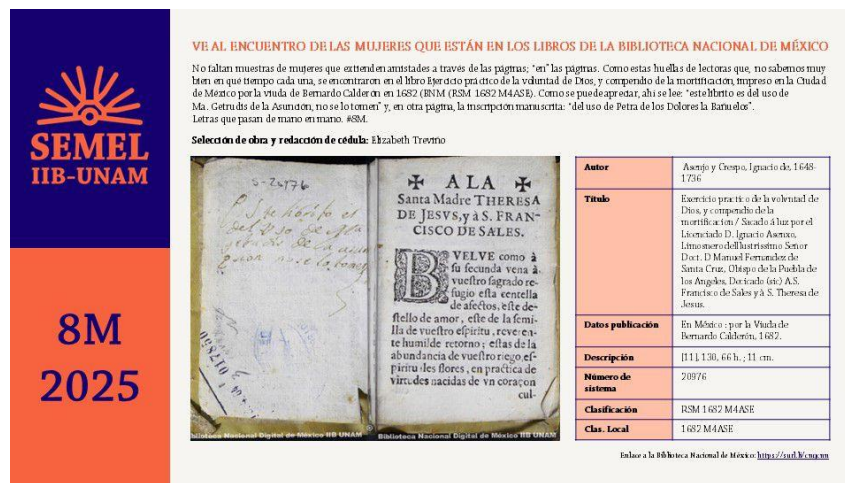 SEMEL
IIB-UNAM
8M
2025
VE AL ENCUENTRO DE LAS MUJERES QUE ESTÁN EN LOS LIBROS DE LA BIBLIOTECA NACIONAL DE MÉXICO
No faltan muestras de mujeres que extienden amistades a través de las páginas; "en" las páginas. Como estas huellas de lectoras que, no sabemos muy
bien en qué tiempo cada una, se encontraron en el libro Ejercicio práctico de la voluntad de Dios, y compendio de la mortificación, impreso en la Ciudad
de México por la viuda de Bernardo Calderón en 1682 (BNM (RSM 1682 M4ASE). Como se puede apreciar, ahí se lee: "este librito es del uso de
Ma. Getrudis de la Asunción, no se lo tomen" y, en otra página, la inscripción manuscrita: "del uso de Petra de los Dolores la Bañuelos".
Letras que pasan de mano en mano. #8M.
Selección de obra y redacción de cédula: Elizabeth Treviño
este librito es
del uso de
no se lo tomen
✠ A LA ✠
Santa Madre THERESA
DE JESVS, y à S. FRAN-
CISCO DE SALES.
BVELVE como à
su fecunda vena à
vuestro sagrado re-
fugio esta centella
de afectos, este de-
stello de amor, este de la semi-
lla de vuestro espiritu, reveren-
te humilde retorno; estas de la
abundancia de vuestro riego, es-
piritu les flores, en practica de
virtudes nacidas de vn coraçon
cul-
Biblioteca Nacional Digital de México IIB UNAM
Biblioteca Nacional Digital de México IIB UNAM
Autor Asenjo y Crespo, Ignacio de, 1648-
1736
Título Exercicio practico de la volvntad de
Dios, y compendio de la
mortificacion / Sacado á luz por el
Licenciado D. Ignacio Asenxo,
Limosnero dell Ilustrissimo Senor
Doct. D Manuel Fernandez de
Santa Cruz, Obispo de la Puebla de
los Angeles, Dericado (sic) A.S.
Francisco de Sales y à S. Theresa de
Jesus.
Datos publicación En México : por la Viuda de
Bernardo Calderón, 1682.
Descripción [11], 130, 66 h. ; 11 cm.
Número de
sistema 20976
Clasificación RSM 1682 M4ASE
Clas. Local 1682 M4ASE
Enlace a la Biblioteca Nacional de México: